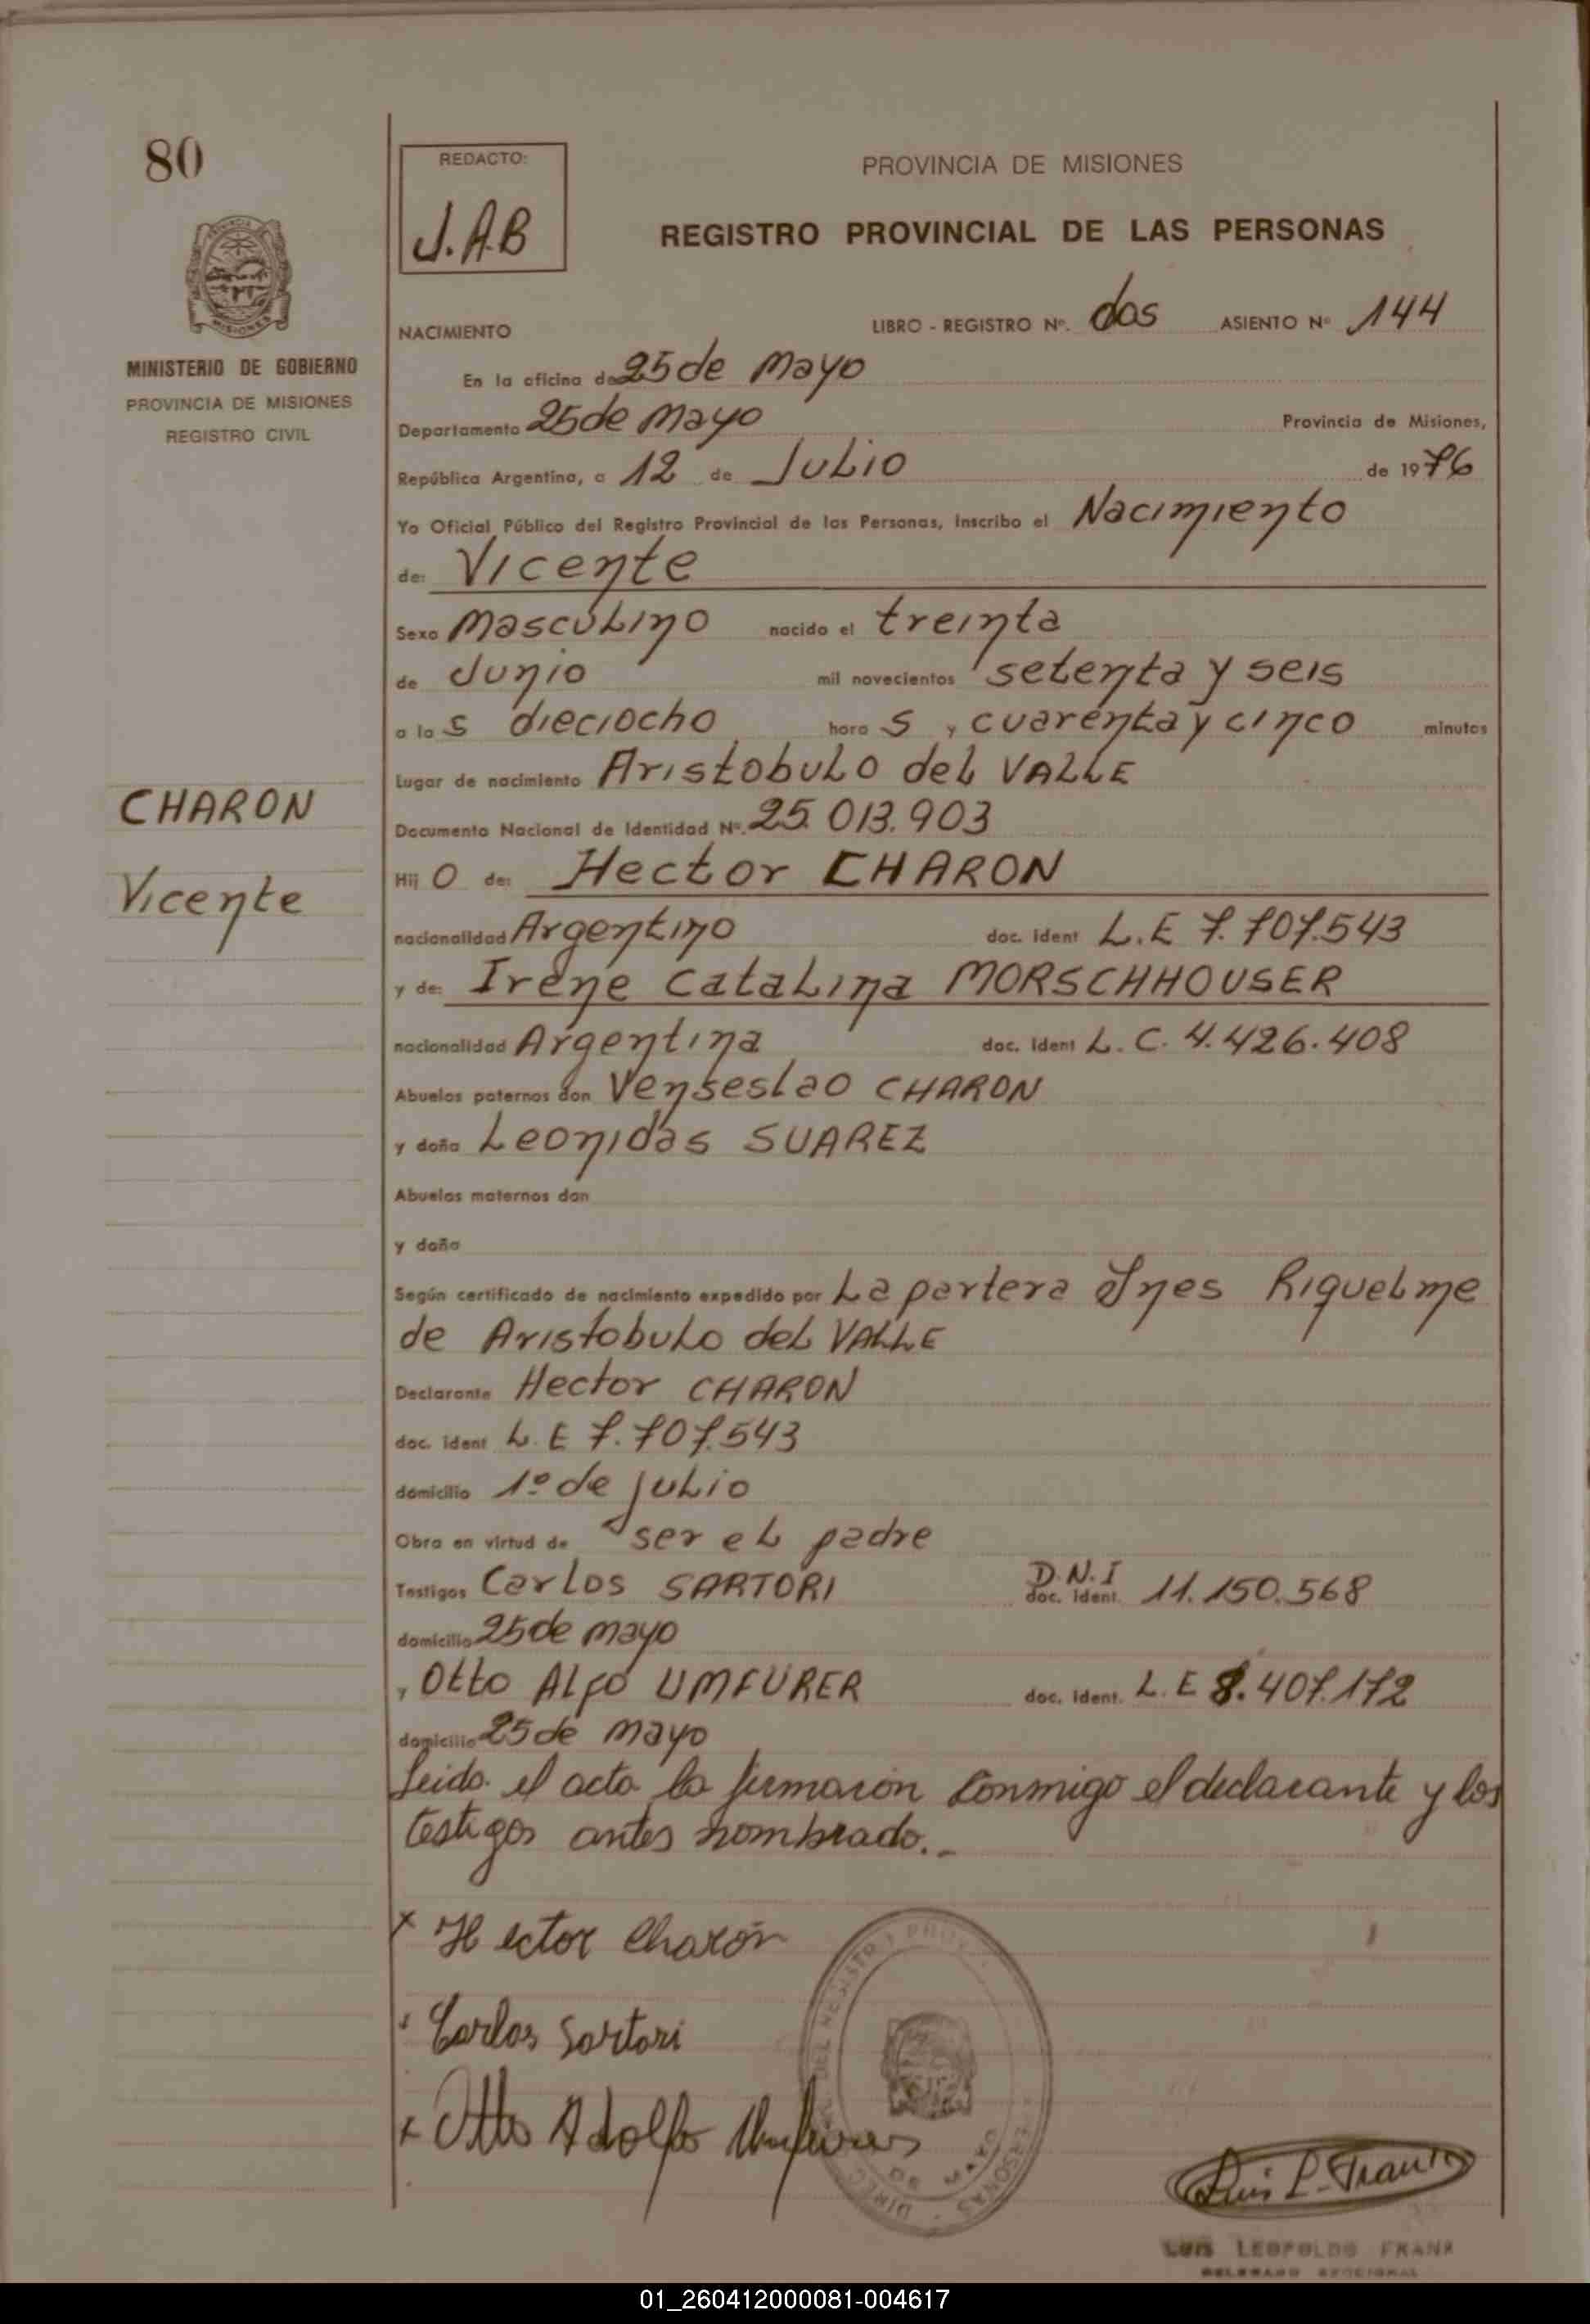 80
REDACTO:
J.A.B
PROVINCIA DE MISIONES
REGISTRO PROVINCIAL DE LAS PERSONAS
MISIONES
MINISTERIO DE GOBIERNO
PROVINCIA DE MISIONES
REGISTRO CIVIL
NACIMIENTO LIBRO - REGISTRO Nº. dos ASIENTO Nº 144
En la oficina de 25 de Mayo
Departamento 25 de Mayo Provincia de Misiones,
República Argentina, a 12 de Julio de 1976
Yo Oficial Público del Registro Provincial de las Personas, inscribo el Nacimiento
de: Vicente
Sexo Masculino nacido el treinta
de Junio mil novecientos setenta y seis
a las dieciocho horas y cuarenta y cinco minutos
Lugar de nacimiento Aristobulo del VALLE
Documento Nacional de Identidad Nº. 25.013.903
CHARON
Vicente
Hijo de: Hector CHARON
nacionalidad Argentino doc. ident L.E 7.707.543
y de: Irene Catalina MORSCHHOUSER
nacionalidad Argentina doc. ident L.C. 4.426.408
Abuelos paternos don Venseslao CHARON
y doña Leonidas SUAREZ
Abuelos maternos don
y doña
Según certificado de nacimiento expedido por La partera Ines Riquelme
de Aristobulo del VALLE
Declarante Hector CHARON
doc. ident L.E 7.707.543
domicilio 1º de Julio
Obra en virtud de ser el padre
Testigos Carlos SARTORI D.N.I doc. ident. 11.150.568
domicilio 25 de mayo
y Otto Alfo UMFURER doc. ident. L.E 8.407.172
domicilio 25 de mayo
Leido el acta la firmaron conmigo el declarante y los
testigos antes nombrado.-
x Hector Charón
Carlos Sartori
x Otto Adolfo
Luis L. Frank
LUIS LEOPOLDO FRANK
01_260412000081-004617